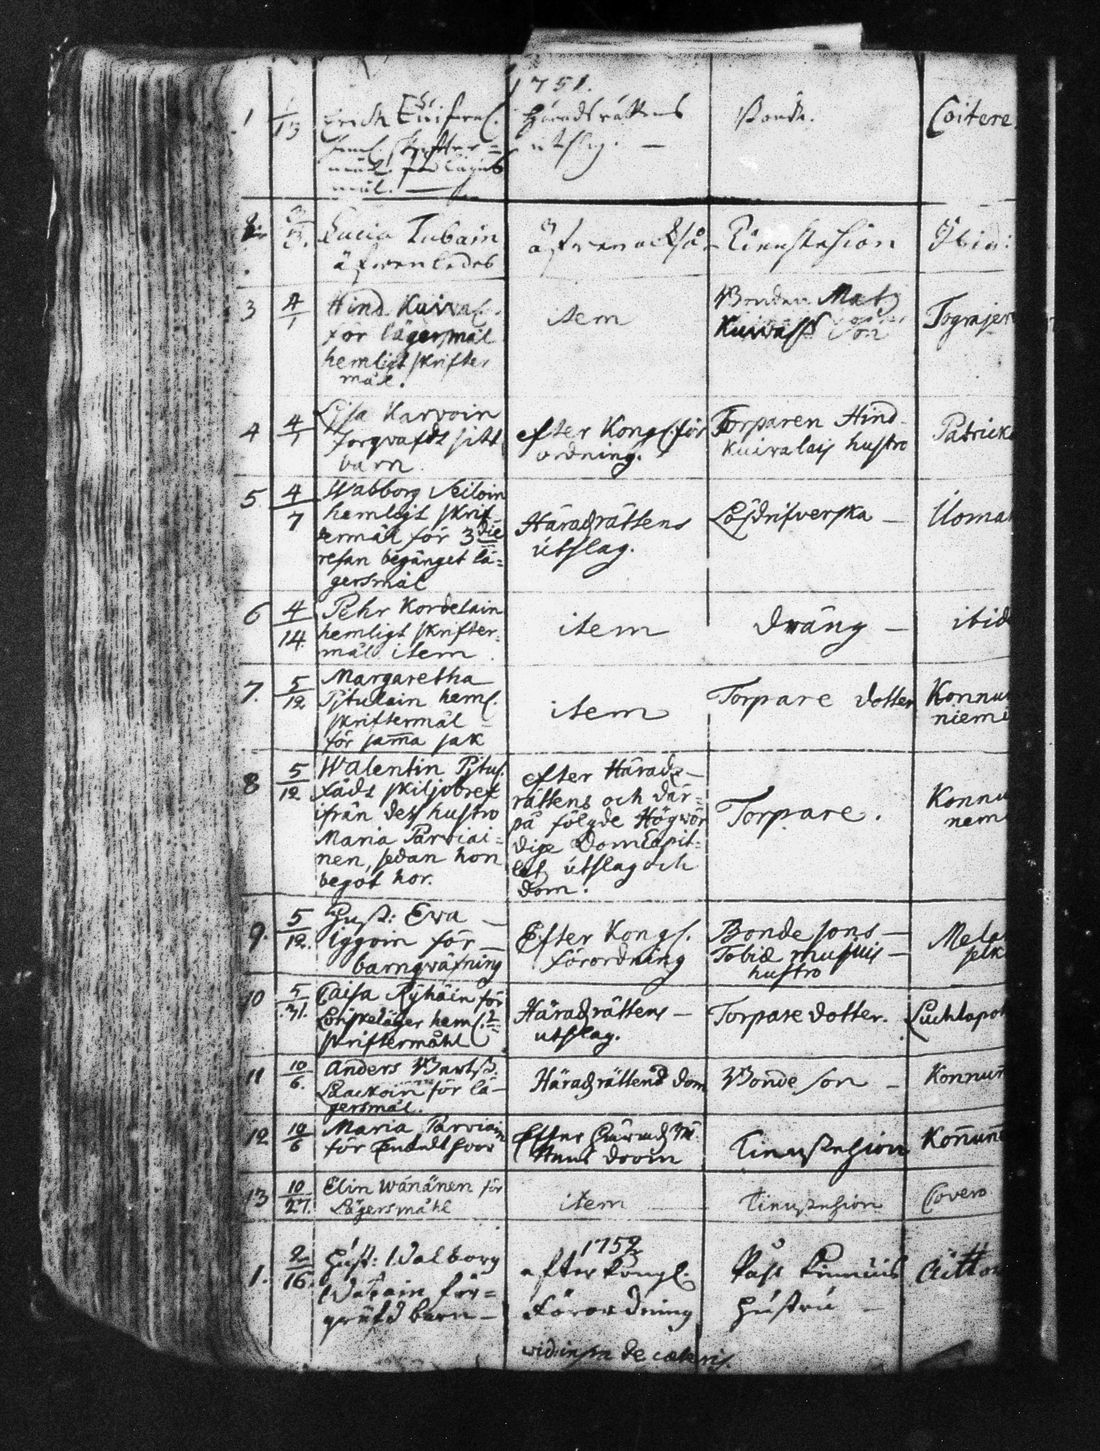 1751.
1 1/13 Erich
Häradsrättens
utslag. —
Bonde.
Coitere
heml. skrifter=
mål. för lägers
mål. —
2. 2/13. Lucia Tubain
äfwenledes
äfwen också
Tienstehion
Ibid:
3 4/1 Hind Kuiva
för lägersmål
hemligt skrifter
mål.
item
Bonden Matz
Kuivalss Son
Tograjer
4 4/1 Lisa Karvoin
forqvafdt sitt
barn.
efter Kongl. för
ordning.
Torparen Hind.
Kuivalais hustro
Patrick
5 4/7 Wabborg Seiloin
hemligt skrif
termål för 3die
resan begånget lä=
gersmål
Häradsrättens
utslag.
Lösdrifverska —
Uoma
6 4/14. Pehr Kordelain
hemligt skrifter=
mål item
item
dräng —
ibid
7. 5/12 Margaretha
Pitulain heml.
skriftermål
för sama sak
item
Torpare dotter
Konnu
niemi
8 5/12 Walentin Pitul.
fåds skiljobref
ifrån dess hustro
Maria Parviai=
nen, sedan hon
begåt hor.
efter Härads—
rättens och där=
på fölgde Högwör
dige DomCapit=
lets utslag och
dom.
Torpare.
Konnu
nem
9. 5/12. Hust: Ewa —
Iggoin för —
barnqväfning
Efter Kongl.
förordning
Bonde sons —
Tobiæ —
hustro
Mela
selk
10 5/31. Caisa Ryhäin för
Lönskeläger heml.
skriftermåhl
Häradsrättens —
utslag.
Torpare dotter.
Luchlapoh
11 10/6. Anders
Laackoin för lä—
gersmål.
Häradsrättens dom
Bonde son —
Konnun
12 10/6 Maria Parviain
för Enkelt hoor
Efter Härads Rä
ttens doom
Tienstehion
Konun
13 10/27. Elin Wänänen för
Lägersmåhl
item
Tienstehion
Covero
1752
1. 2/16. Hust: Walborg
för=
qväfd barn —
efter Kongl.
Förordning
Hustru —
vid: infra de cæteris.